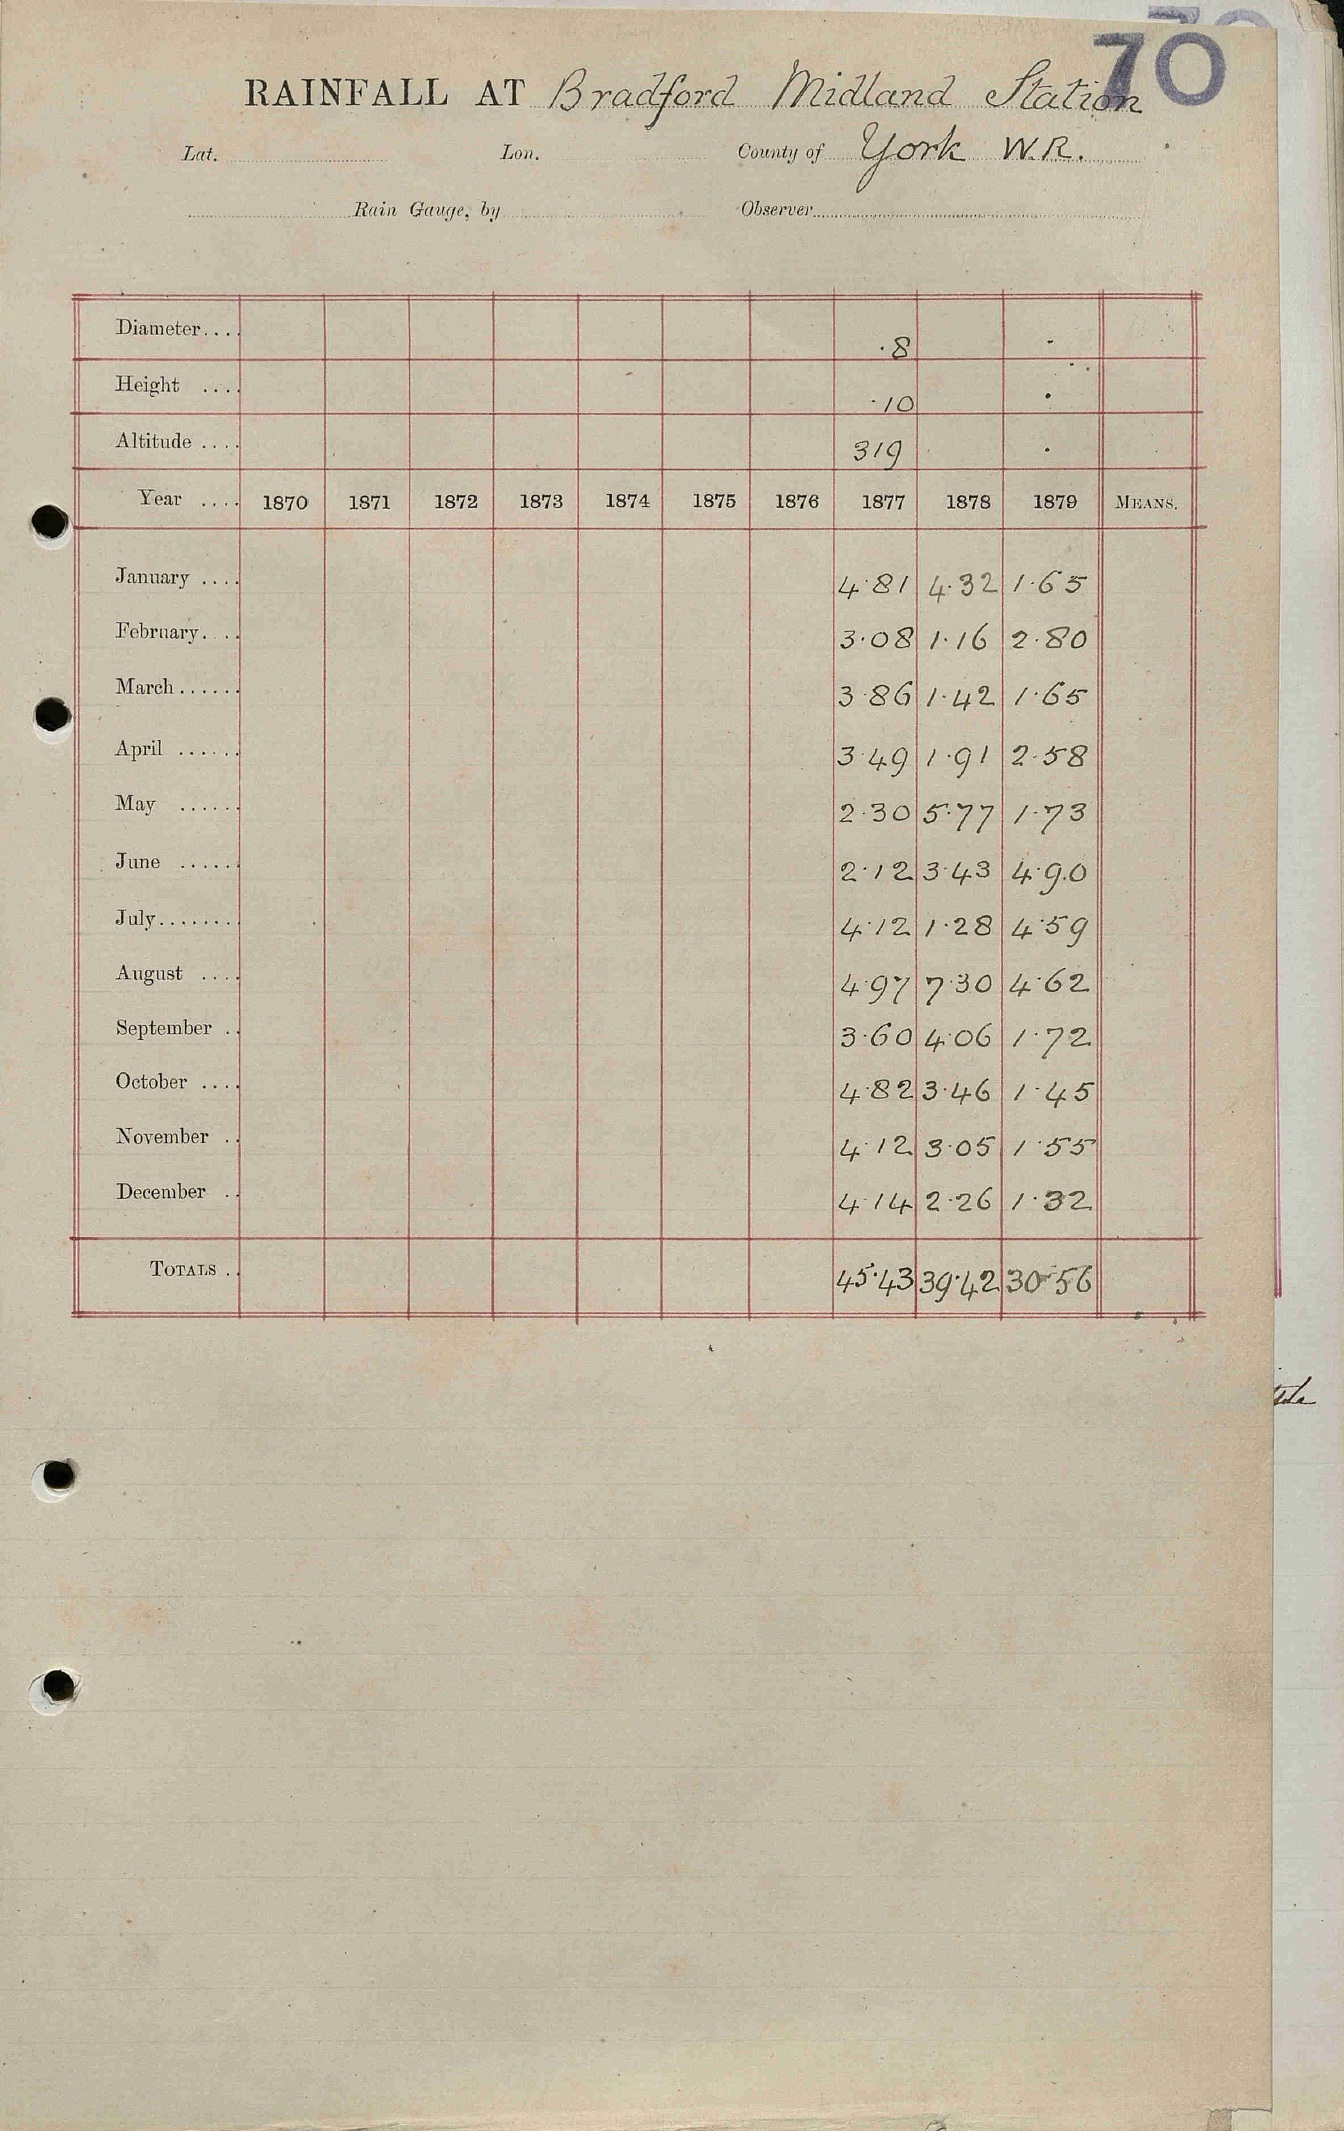 70
RAINFALL AT Bradford Midland Station
Lat. Lon. County of York W.R.
Rain Gauge, by Observer
Diameter.... ·8 ·
Height .... ·10 ·
Altitude .... 319 ·
Year .... 1870 1871 1872 1873 1874 1875 1876 1877 1878 1879 MEANS.
January .... 4·81 4·32 1·65
February.... 3·08 1·16 2·80
March...... 3·86 1·42 1·65
April ...... 3·49 1·91 2·58
May ...... 2·30 5·77 1·73
June ...... 2·12 3·43 4·90
July........ 4·12 1·28 4·59
August .... 4·97 7·30 4·62
September .. 3·60 4·06 1·72
October .... 4·82 3·46 1·45
November .. 4·12 3·05 1·55
December .. 4·14 2·26 1·32
TOTALS .. 45·43 39·42 30·56